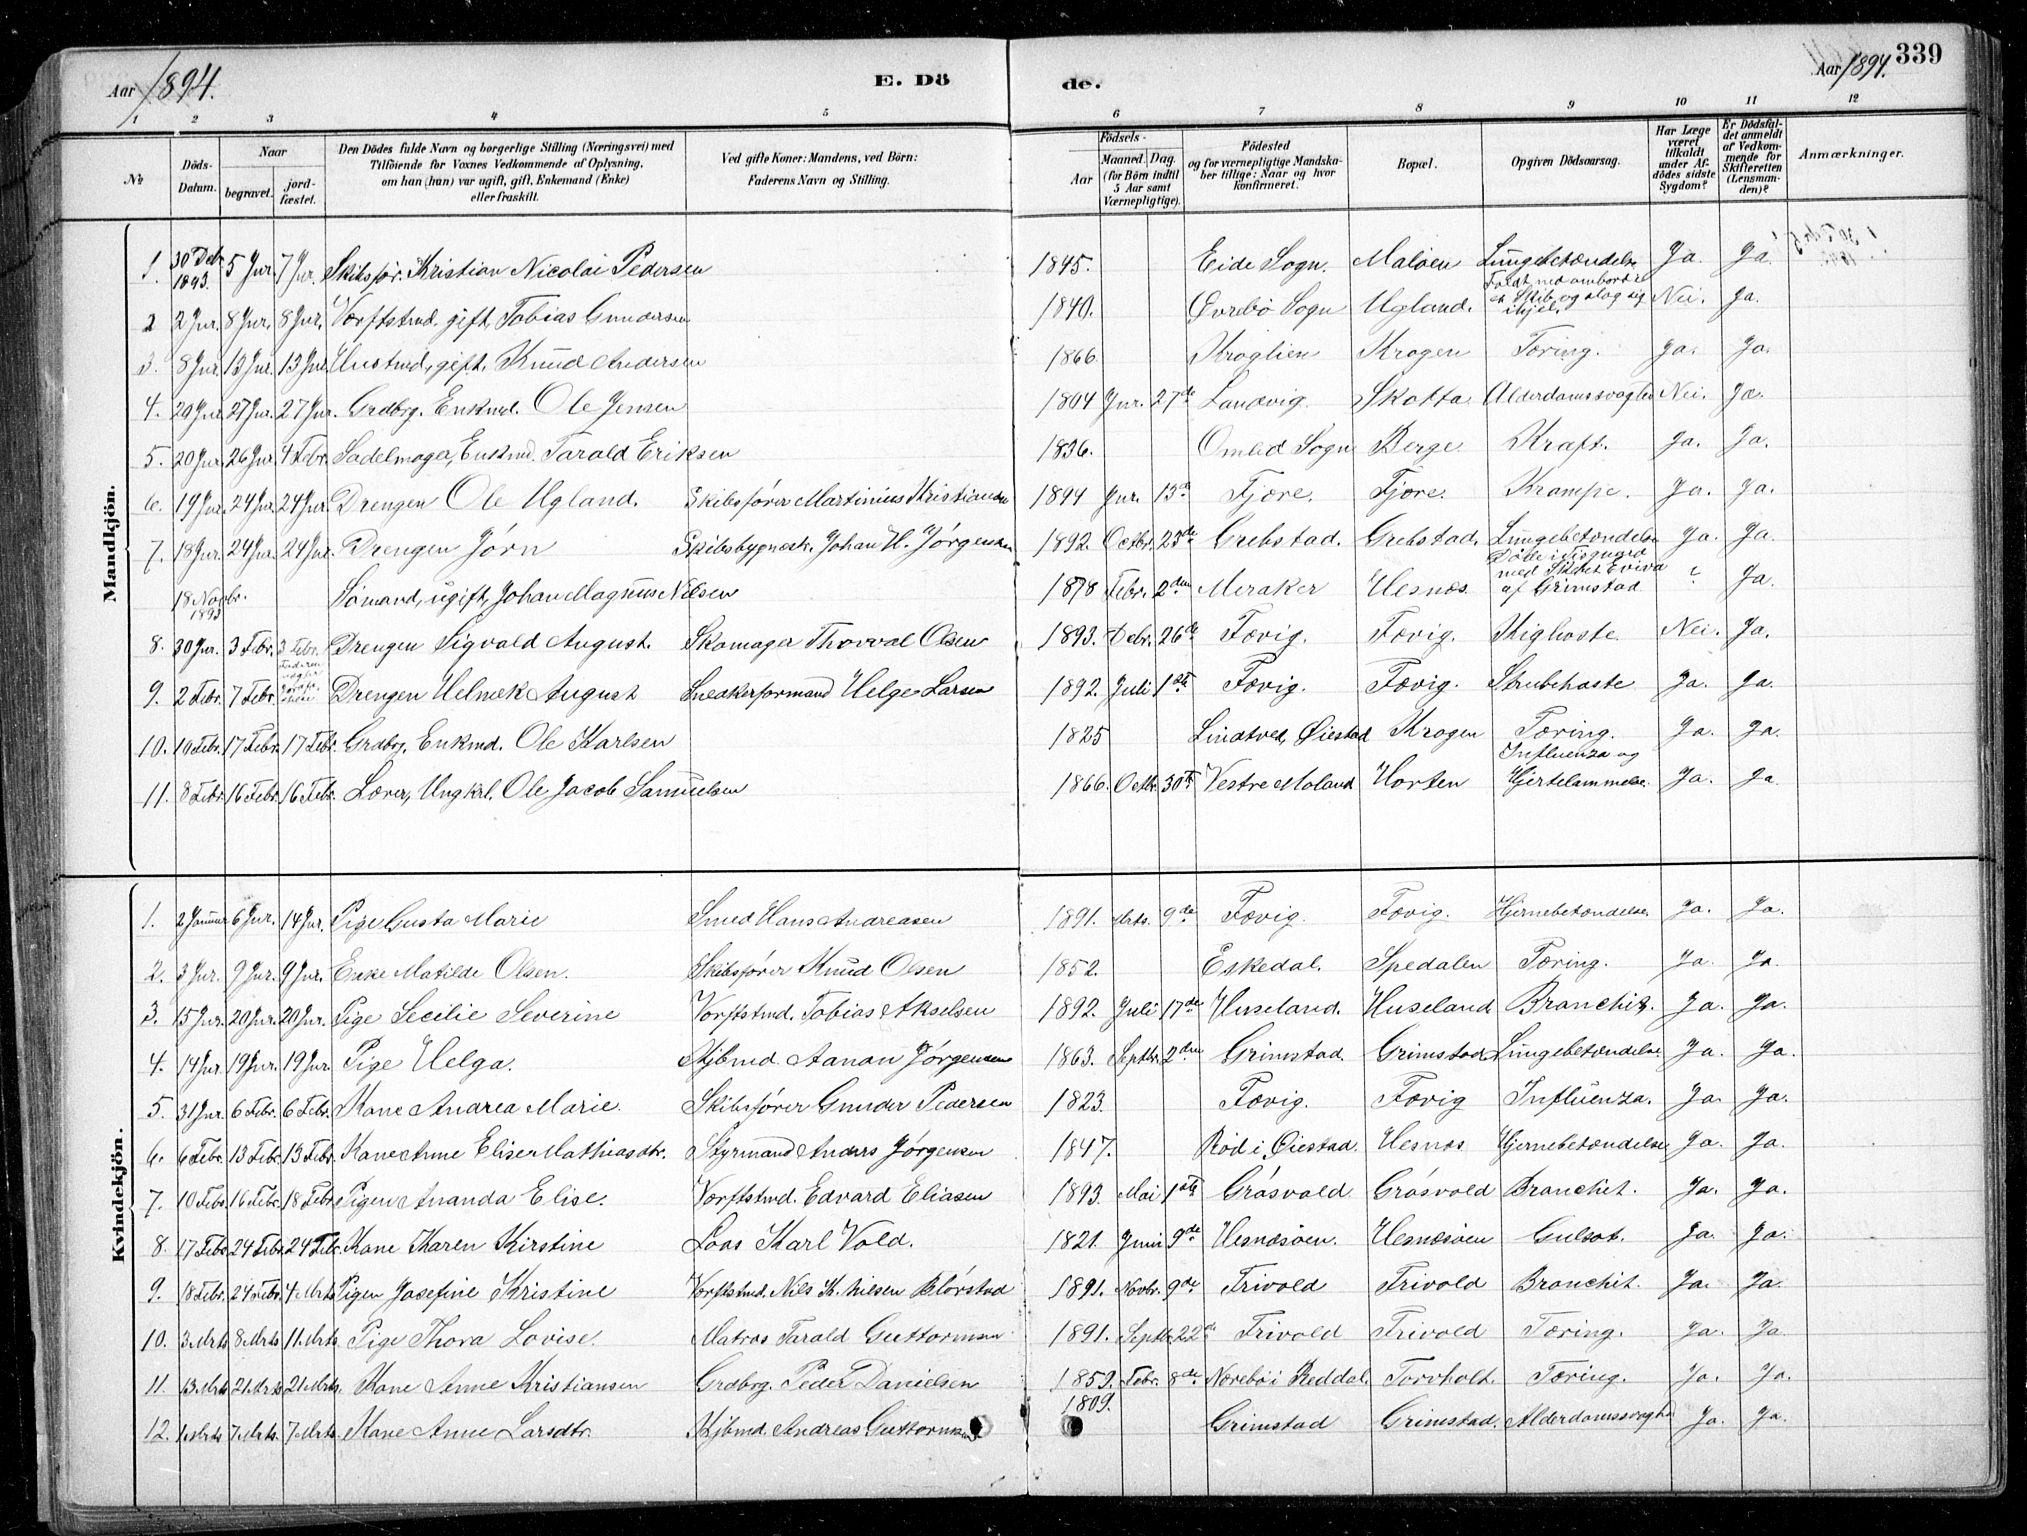 Aar 1894. E. Dö de. Aar 1894. 339
1 2 3 4 5 6 7 8 9 10 11 12
No Döds-Datum. Naar begravet. jord-fæstet. Den Dödes fulde Navn og borgerlige Stilling (Næringsvei) med Tilföiende for Voxnes Vedkommende af Oplysning, om han (hun) var ugift, gift, Enkemand (Enke) eller fraskilt. Ved gifte Koner: Mandens, ved Börn: Faderens Navn og Stilling. Födsels- Aar Maaned. Dag. (for Börn indtil 5 Aar samt Værnepligtige). Födested og for værnepligtige Mandskaber tillige: Naar og hvor konfirmeret. Bopæl. Opgiven Dödsaarsag. Har Læge været tilkaldt under Afdödes sidste Sygdom? Er Dödsfaldet anmeldt af Vedkommende for Skifteretten (Lensmanden)? Anmærkninger.
Mandkjön.
1. 30 Debr 1893. 5 Jnr. 7 Jnr. Skibsför. Kristian Nicolai Pedersen 1845. Eide Sogn. Maløen Lungebetændelse Ja. Ja.
2 2 Jnr. 8 Jnr. 8 Jnr. Værftsmd. gift, Tobias Gundersen 1840. Øvrebø Sogn Ugland. Faldt ned ombord i et Skib og slog sig ihjel. Nei. Ja.
3. 8 Jnr. 13 Jnr. 13 Jnr. Hustmd, gift, Knud Andersen 1866. Kroglien Krogen Tæring. Ja. Ja.
4. 20 Jnr. 27 Jnr. 27 Jnr. Grdbrg. Enkmd. Ole Jensen 1804 Jnr. 27de Landvig. Skatta Alderdomssvaghed Nei. Ja.
5. 20 Jnr. 26 Jnr. 4 Febr. Sadelmager, Enkmd. Tarald Eriksen 1836. Omlid Sogn Berge. Kræft. Ja. Ja.
6. 19 Jnr. 24 Jnr. 24 Jnr. Drengen Ole Ugland. Skibsfører Martinius Kristiansen 1894 Jnr. 13de Fjære. Fjære. Krampe. Ja. Ja.
7. 18 Jnr. 24 Jnr. 24 Jnr. Drengen Jørn Skibsbygmest. Johan H. Jørgensen 1892. Octbr. 23de Grebstad. Grebstad. Lungebetændelse Ja. Ja.
18 Novbr. 1893 Sömand, ugift, Johan Magnus Nilsen 1878 Febr. 2den Meraker Hesnæs. med Skibet Eviva af Grimstad ? Ja.
8. 30 Jnr. 3 Febr. 3 Febr. Drengen Sigvald August. Skomager Thorval Olsen 1893. Debr. 26de Fævig. Fævig. Kighoste Nei. Ja.
9. 2 Febr. 7 Febr. Drengen Helmek August Snedkerformand Helge Larsen 1892. Juli 1ste Fævig. Fævig. Strubehoste Ja. Ja.
10. 10 Febr. 17 Febr. 17 Febr. Grdbrg. Enkmd. Ole Karlsen 1825 Lindtved, Øiestad Krogen Tæring. Ja. Ja.
11. 8 Febr. 16 Febr. 16 Febr. Lærer, Ungkrl. Ole Jacob Samuelsen 1866. Octbr. 30te Vestre Moland Horten Influenza og Hjertelammelse. Ja. Ja
Kvindekjön.
1. 2 Januar 6 Jnr. 14 Jnr. Pige Gusta Marie Smed Hans Andreasen 1891. Mrts. 9de Fævig. Fævig. Hjernebetændelse. Ja. Ja.
2. 3 Jnr. 9 Jnr. 9 Jnr. Enke Matilde Olsen. Skibsfører Knud Olsen 1852. Eskedal. Spedalen Tæring. Ja. Ja.
3. 15 Jnr. 20 Jnr. 20 Jnr. Pige Secilie Severine Værftstmd. Tobias Akselsen 1892. Juli 17de Huseland. Huseland. Branchit. Ja. Ja.
4. 14 Jnr 19 Jnr. 19 Jnr. Pige Helga. Kjbmd. Aanon Jørgensen 1863. Septbr. 2den Grimstad. Grimstad. Lungebetændelse Ja. Ja.
5. 31 Jnr. 6 Febr. 6 Febr. Kone Andrea Marie. Skibsfører Gunder Pedersen 1823. Fævig. Fævig Influenza. Ja. Ja.
6. 6 Febr. 13 Febr. 13 Febr. Kone Anne Elise Mathiasdtr. Styrmand Anders Jørgensen 1847. Rød i Øiestad. Hesnæs. Hjernebetændelse Ja. Ja.
7. 10 Febr. 16 Febr. 18 Febr. Pigen Ananda Elise. Værftstmd. Edvard Eliasen 1893. Mai 1ste Gråsvold. Gråsvold Branchit. Ja. Ja.
8. 17 Febr. 24 Febr. 24 Febr. Kone Karen Kirstine Lods Karl Vold. 1821. Juni 9de Hesnæsøen. Hesnæsøen Gulsot. Ja. Ja.
9. 18 Febr. 24 Febr. 4 Mrts. Pigen Josefine Kristine Værftstmd. Nils K. Nilsen Blørstad 1891. Novbr. 9de Trivold Trivold Branchit. Ja. Ja.
10. 3 Mrts 8 Mrts 11 Mrts. Pige Thora Lovise. Matros Tarald Guttormsen 1891. Septbr. 22de Trivold Trivold Tæring. Ja. Ja
11. 13 Mrts 21 Mrts 21 Mrts. Kone Anne Kristiansen Grdbrg. Peder Danielsen 1859. Febr. 8de Nærebø i Reddal. Torvholt. Tæring. Ja. Ja.
12. 1 Mrts 7 Mrts. 7 Mrts. Kone Anne Larsdtr. Kjbmd. Andreas Guttormsen 1809. Grimstad Grimstad. Alderdomssvaghed Ja. Ja.